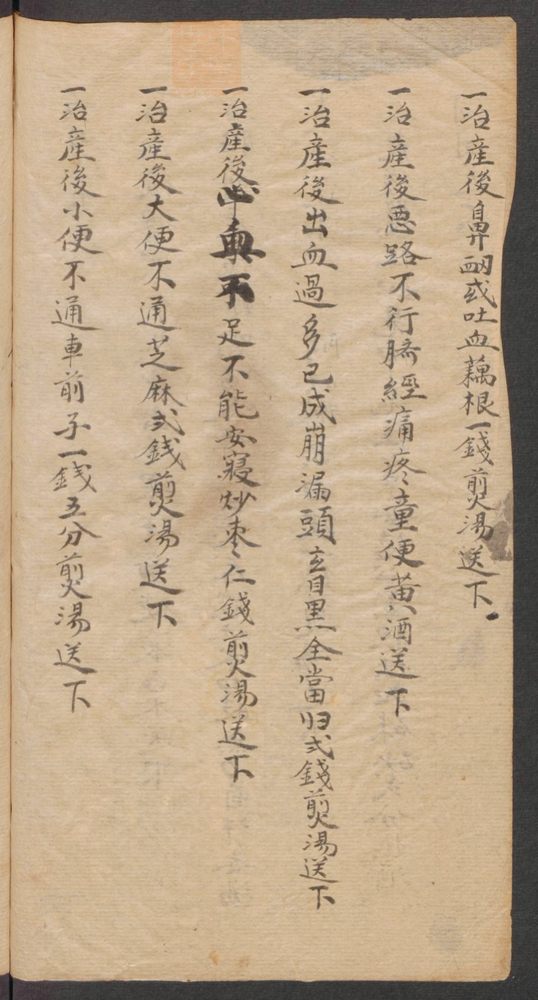 一治產後鼻衄或吐血藕根一錢煎湯送下
一治產後惡路不行臍經痛疼童便黃酒送下
一治產後出血過多已成崩漏頭玄目黑全當归弍錢煎湯送下
一治產後心血不足不能安寢炒枣仁錢煎湯送下
一治產後大便不通芝麻弍錢煎湯送下
一治產後小便不通車前子一錢五分煎湯送下